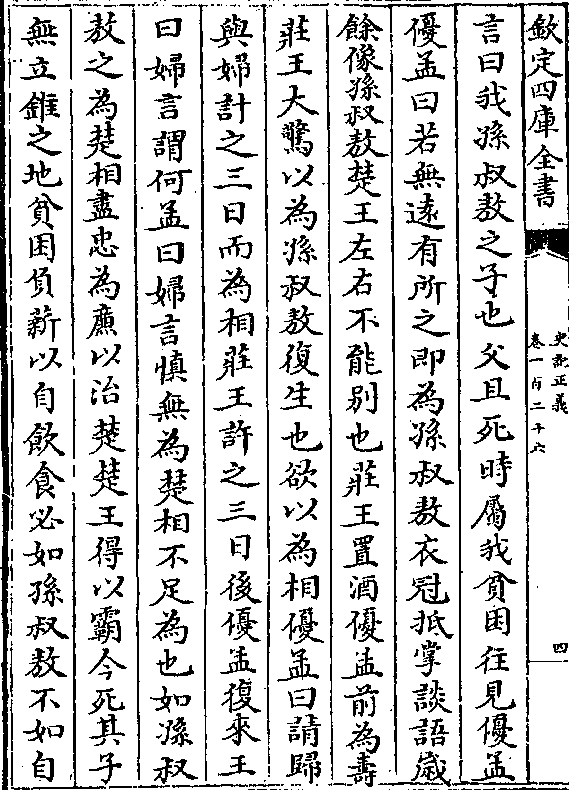 欽定四庫全書
史記正義
卷一百二十六
四
言曰我孫叔敖之子也父且死時屬我貧困往見優孟
優孟曰若無遠有所之即為孫叔敖衣冠抵掌談語歲
餘像孫叔敖楚王左右不能別也莊王置酒優孟前為壽
莊王大驚以為孫叔敖復生也欲以為相優孟曰請歸
與婦計之三日而為相莊王許之三日後優孟復來王
曰婦言謂何孟曰婦言慎無為楚相不足為也如孫叔
敖之為楚相盡忠為廉以治楚楚王得以霸今死其子
無立錐之地貧困負薪以自飲食必如孫叔敖不如自